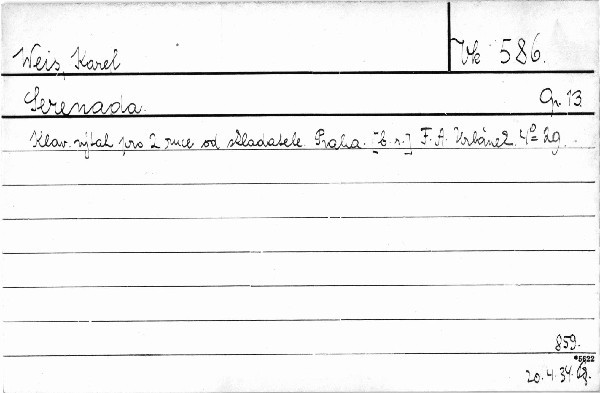 Weis, Karel
586.
Serenada.
Op. 13.
Klav. výtah pro 2 ruce od skladatele. Praha. [b. r.] F. A. Urbánek. 4° Lg.
859.
*5622
20. 4. 34.